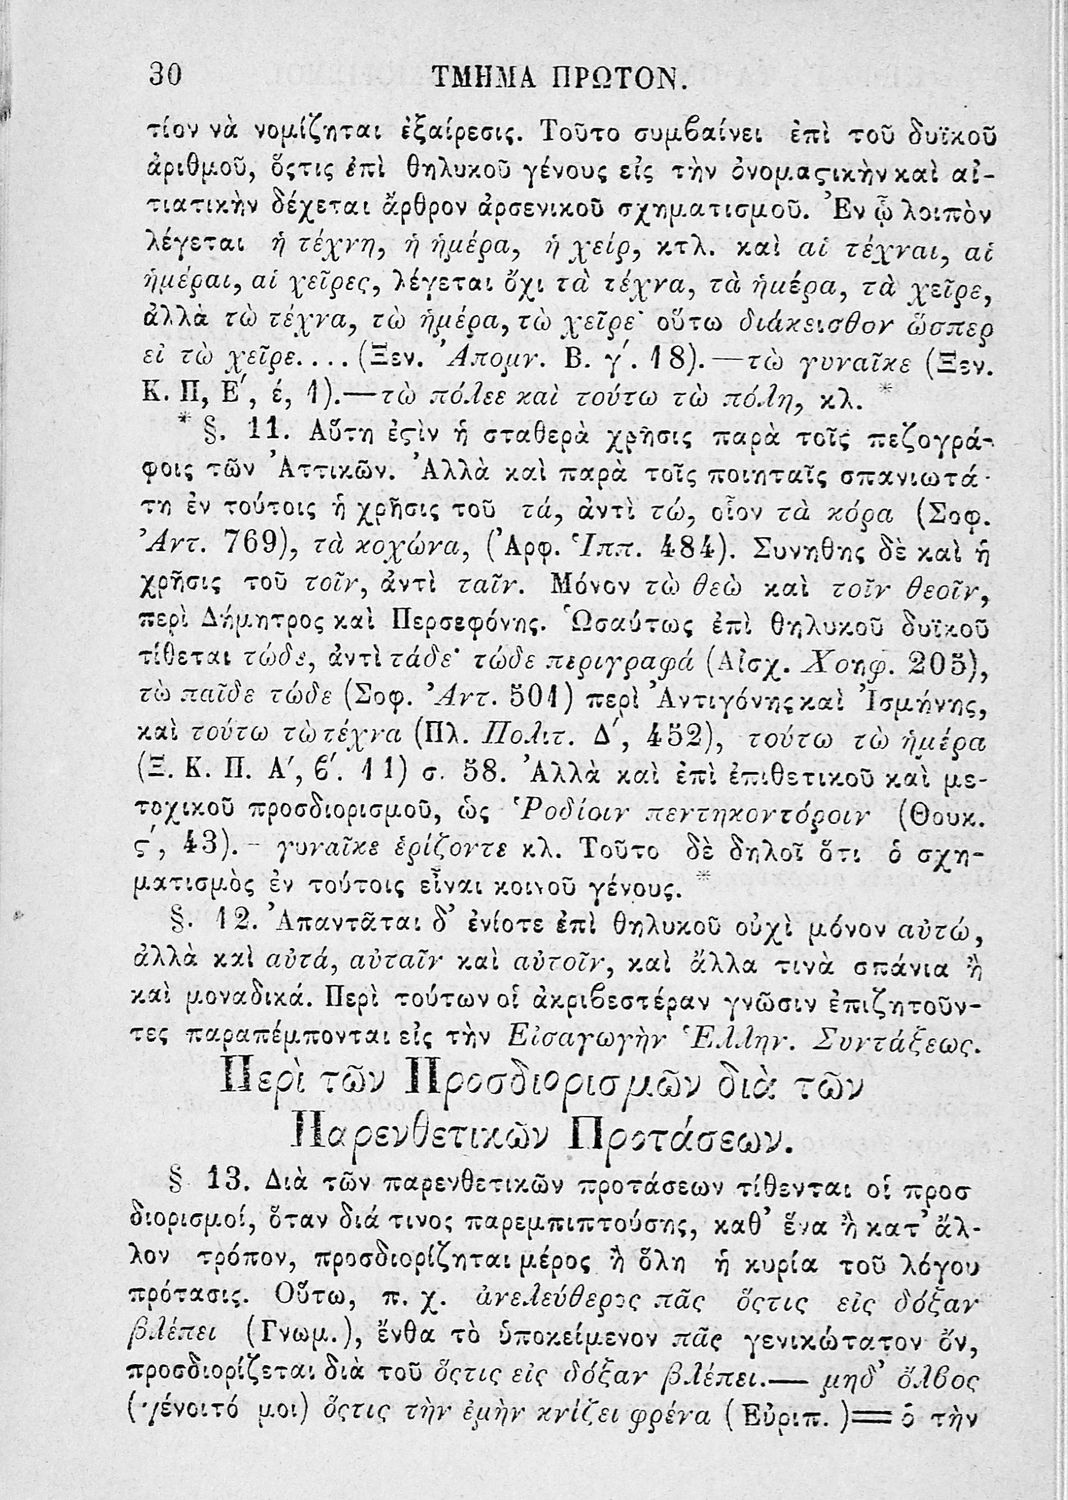 30 ΤΜΗΜΑ ΠΡΩΤΟΝ.
τίον νὰ νομίζηται ἐξαίρεσις. Τοῦτο συμϐαίνει ἐπὶ τοῦ δυϊκοῦ
ἀριθμοῦ, ὅςτις ἐπὶ θηλυκοῦ γένους εἰς τὴν ὀνομαϛικὴν καὶ αἰ-
τιατικὴν δέχεται ἄρθρον ἀρσενικοῦ σχηματισμοῦ. Ἐν ᾧ λοιπὸν
λέγεται ἡ τέχνη, ἡ ἡμέρα, ἡ χείρ, κτλ. καὶ αἱ τέχναι, αἱ
ἡμέραι, αἱ χεῖρες, λέγεται ὄχι τὰ τέχνα, τὰ ἡμέρα, τὰ χεῖρε,
ἀλλὰ τὼ τέχνα, τὼ ἡμέρα, τὼ χεῖρε· οὕτω διάκεισθον ὥσπερ
εἰ τὼ χεῖρε.... (Ξεν. Ἀπομν. Β. γ΄. 18).—τὼ γυναῖκε (Ξεν.
Κ. Π, Ε΄, έ, 1).—τὼ πόλεε καὶ τούτω τὼ πόλη, κλ. *
* §. 11. Αὕτη ἐϛὶν ἡ σταθερὰ χρῆσις παρὰ τοῖς πεζογρά-
φοις τῶν Ἀττικῶν. Ἀλλὰ καὶ παρὰ τοῖς ποιηταῖς σπανιωτά-
τη ἐν τούτοις ἡ χρῆσις τοῦ τά, ἀντὶ τώ, οἷον τὰ κόρα (Σοφ.
Ἀντ. 769), τὰ κοχώνα, (Ἀρφ. Ἱππ. 484). Συνηθης δὲ καὶ ἡ
χρῆσις τοῦ τοῖν, ἀντὶ ταῖν. Μόνον τὼ θεὼ καὶ τοῖν θεοῖν,
περὶ Δήμητρος καὶ Περσεφόνης. Ὡσαύτως ἐπὶ θηλυκοῦ δυϊκοῦ
τίθεται τώδε, ἀντὶ τάδε· τώδε περιγραφά (Αἰσχ. Χοηφ. 205),
τὼ παῖδε τώδε (Σοφ. Ἀντ. 501) περὶ Ἀντιγόνης καὶ Ἰσμήνης,
καὶ τούτω τὼ τέχνα (Πλ. Πολιτ. Δ΄, 452), τούτω τὼ ἡμέρα
(Ξ. Κ. Π. Α΄, ϐ΄. 11) σ. 58. Ἀλλὰ καὶ ἐπὶ ἐπιθετικοῦ καὶ με-
τοχικοῦ προσδιορισμοῦ, ὡς Ῥοδίοιν πεντηκοντόροιν (Θουκ.
ϛ΄, 43). - γυναῖκε ἐρίζοντε κλ. Τοῦτο δὲ δηλοῖ ὅτι ὁ σχη-
ματισμὸς ἐν τούτοις εἶναι κοινοῦ γένους. *
§. 12. Ἀπαντᾶται δ' ἐνίοτε ἐπὶ θηλυκοῦ οὐχὶ μόνον αὐτώ,
ἀλλὰ καὶ αὐτά, αὐταῖν καὶ αὐτοῖν, καὶ ἄλλα τινὰ σπάνια ἢ
καὶ μοναδικά. Περὶ τούτων οἱ ἀκριϐεστέραν γνῶσιν ἐπιζητοῦν-
τες παραπέμπονται εἰς τὴν Εἰσαγωγὴν Ἑλλην. Συντάξεως.
Περὶ τῶν Προσδιορισμῶν διὰ τῶν
Παρενθετικῶν Προτάσεων.
§ 13. Διὰ τῶν παρενθετικῶν προτάσεων τίθενται οἱ προσ
διορισμοί, ὅταν διά τινος παρεμπιπτούσης, καθ' ἕνα ἢ κατ' ἄλ-
λον τρόπον, προσδιορίζηται μέρος ἢ ὅλη ἡ κυρία τοῦ λόγου
πρότασις. Οὕτω, π. χ. ἀνελεύθερος πᾶς ὅςτις εἰς δόξαν
βλέπει (Γνωμ.), ἔνθα τὸ ὑποκείμενον πᾶς γενικώτατον ὄν,
προσδιορίζεται διὰ τοῦ ὅςτις εἰς δόξαν βλέπει.— μηδ' ὄλϐος
(γένοιτό μοι) ὅςτις τὴν ἐμὴν κνίζει φρένα (Εὐριπ.)= ὁ τὴν